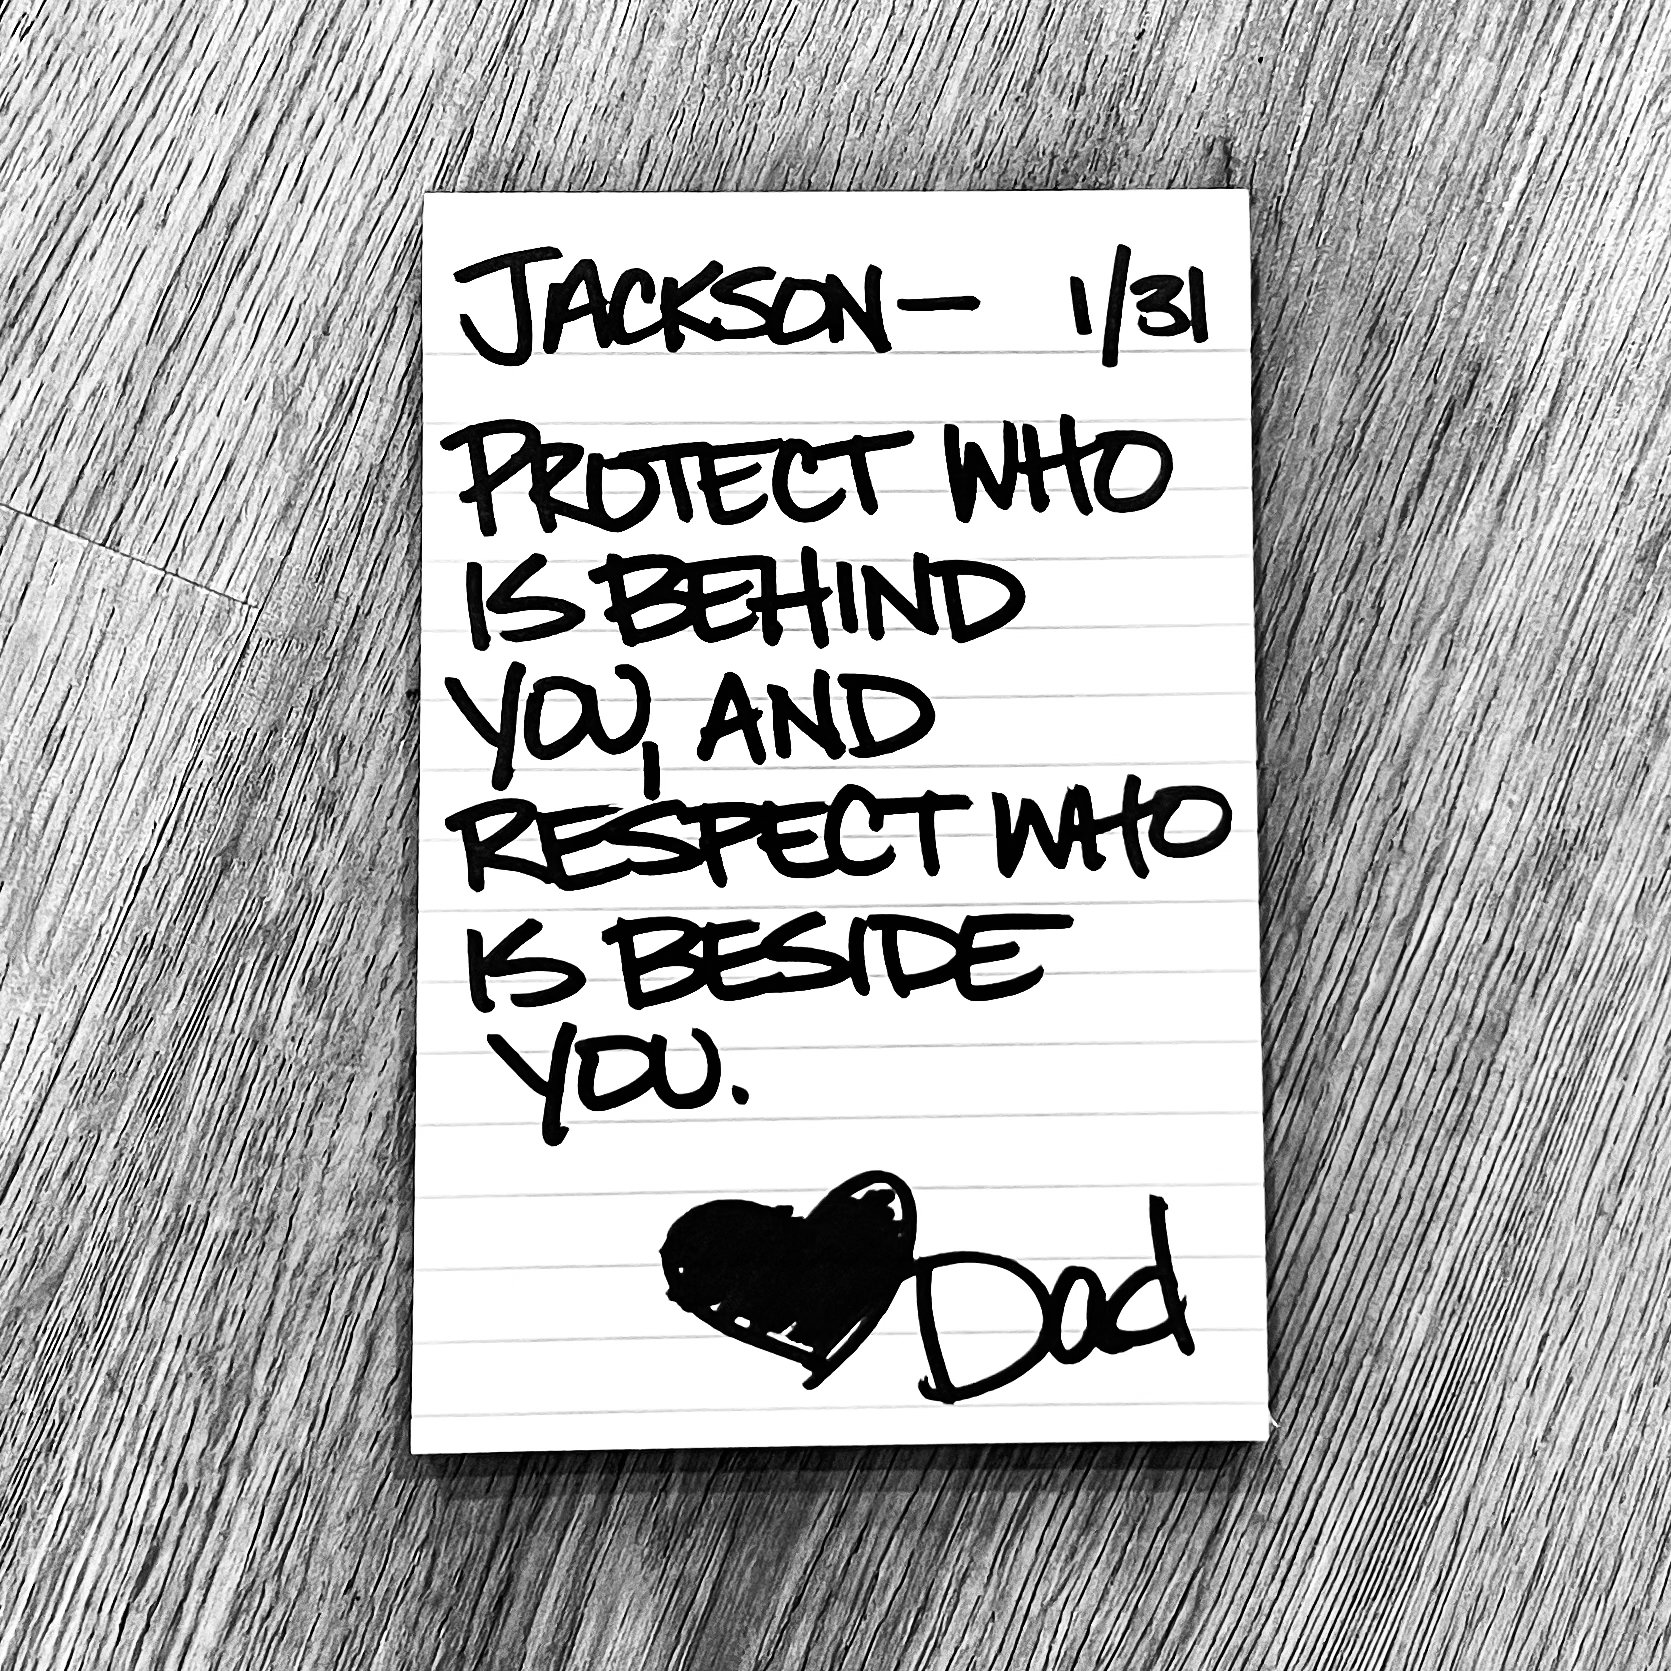 JACKSON— 1/31
PROTECT WHO
IS BEHIND
YOU, AND
RESPECT WHO
IS BESIDE
YOU.
Dad